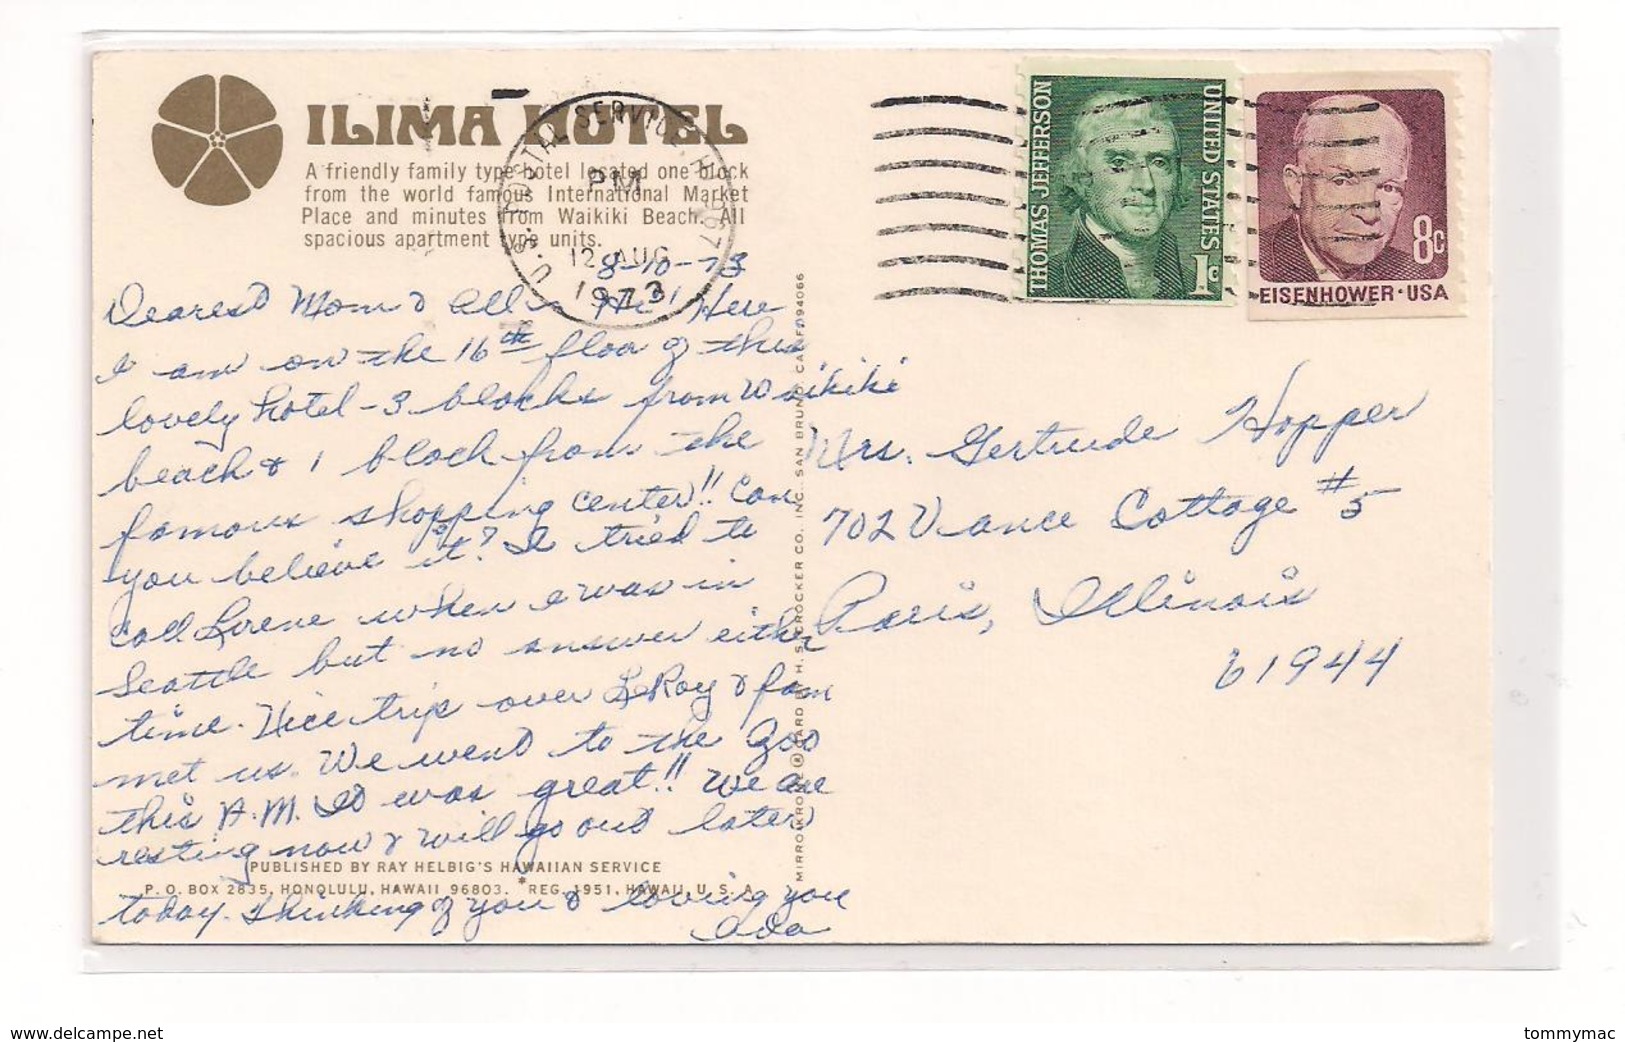 ILIMA HOTEL
A friendly family type hotel located one block
from the world famous International Market
Place and minutes from Waikiki Beach. All
spacious apartment type units.
U.S. POSTAL SERVICE, HI 967
PM
12 AUG
1973
THOMAS JEFFERSON
UNITED STATES
1c
8c
EISENHOWER · USA
8-10-73
Dearest Mom & All - Hi! Here
I am on the 16th floor of this
lovely hotel - 3 blocks from Waikiki
beach & 1 block from the
famous shopping center!! Can
you believe it? I tried to
call Lorene when I was in
Seattle but no answer either
time. Nice trip over LeRoy & fam
met us. We went to the Zoo
this A.M. It was great!! We are
resting now & will go out later
today. Thinking of you & loving you
Ada
PUBLISHED BY RAY HELBIG'S HAWAIIAN SERVICE
P. O. BOX 2835, HONOLULU, HAWAII 96803. *REG. 1951, HAWAII, U. S. A.
MIRRO-KROME ® CARD BY H. S. CROCKER CO., INC., SAN BRUNO, CALIF. 94066
Mrs. Gertrude Hopper
702 Vance Cottage #5
Paris, Illinois
61944
www.delcampe.net
tommymac